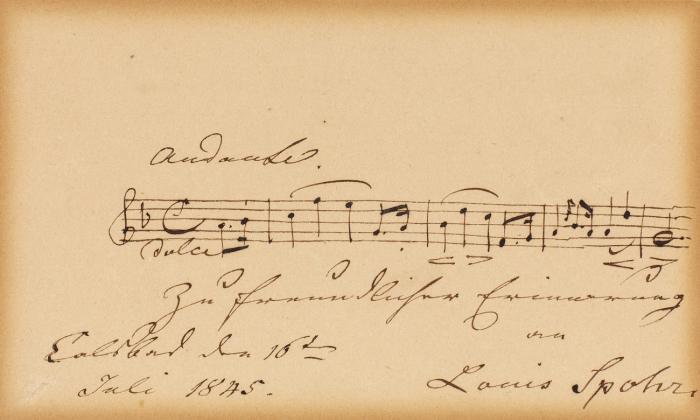 Andante.
dolce
Zu freundlicher Erinnerung
an
Calsbad den 16t
Juli 1845. Louis Spohr.